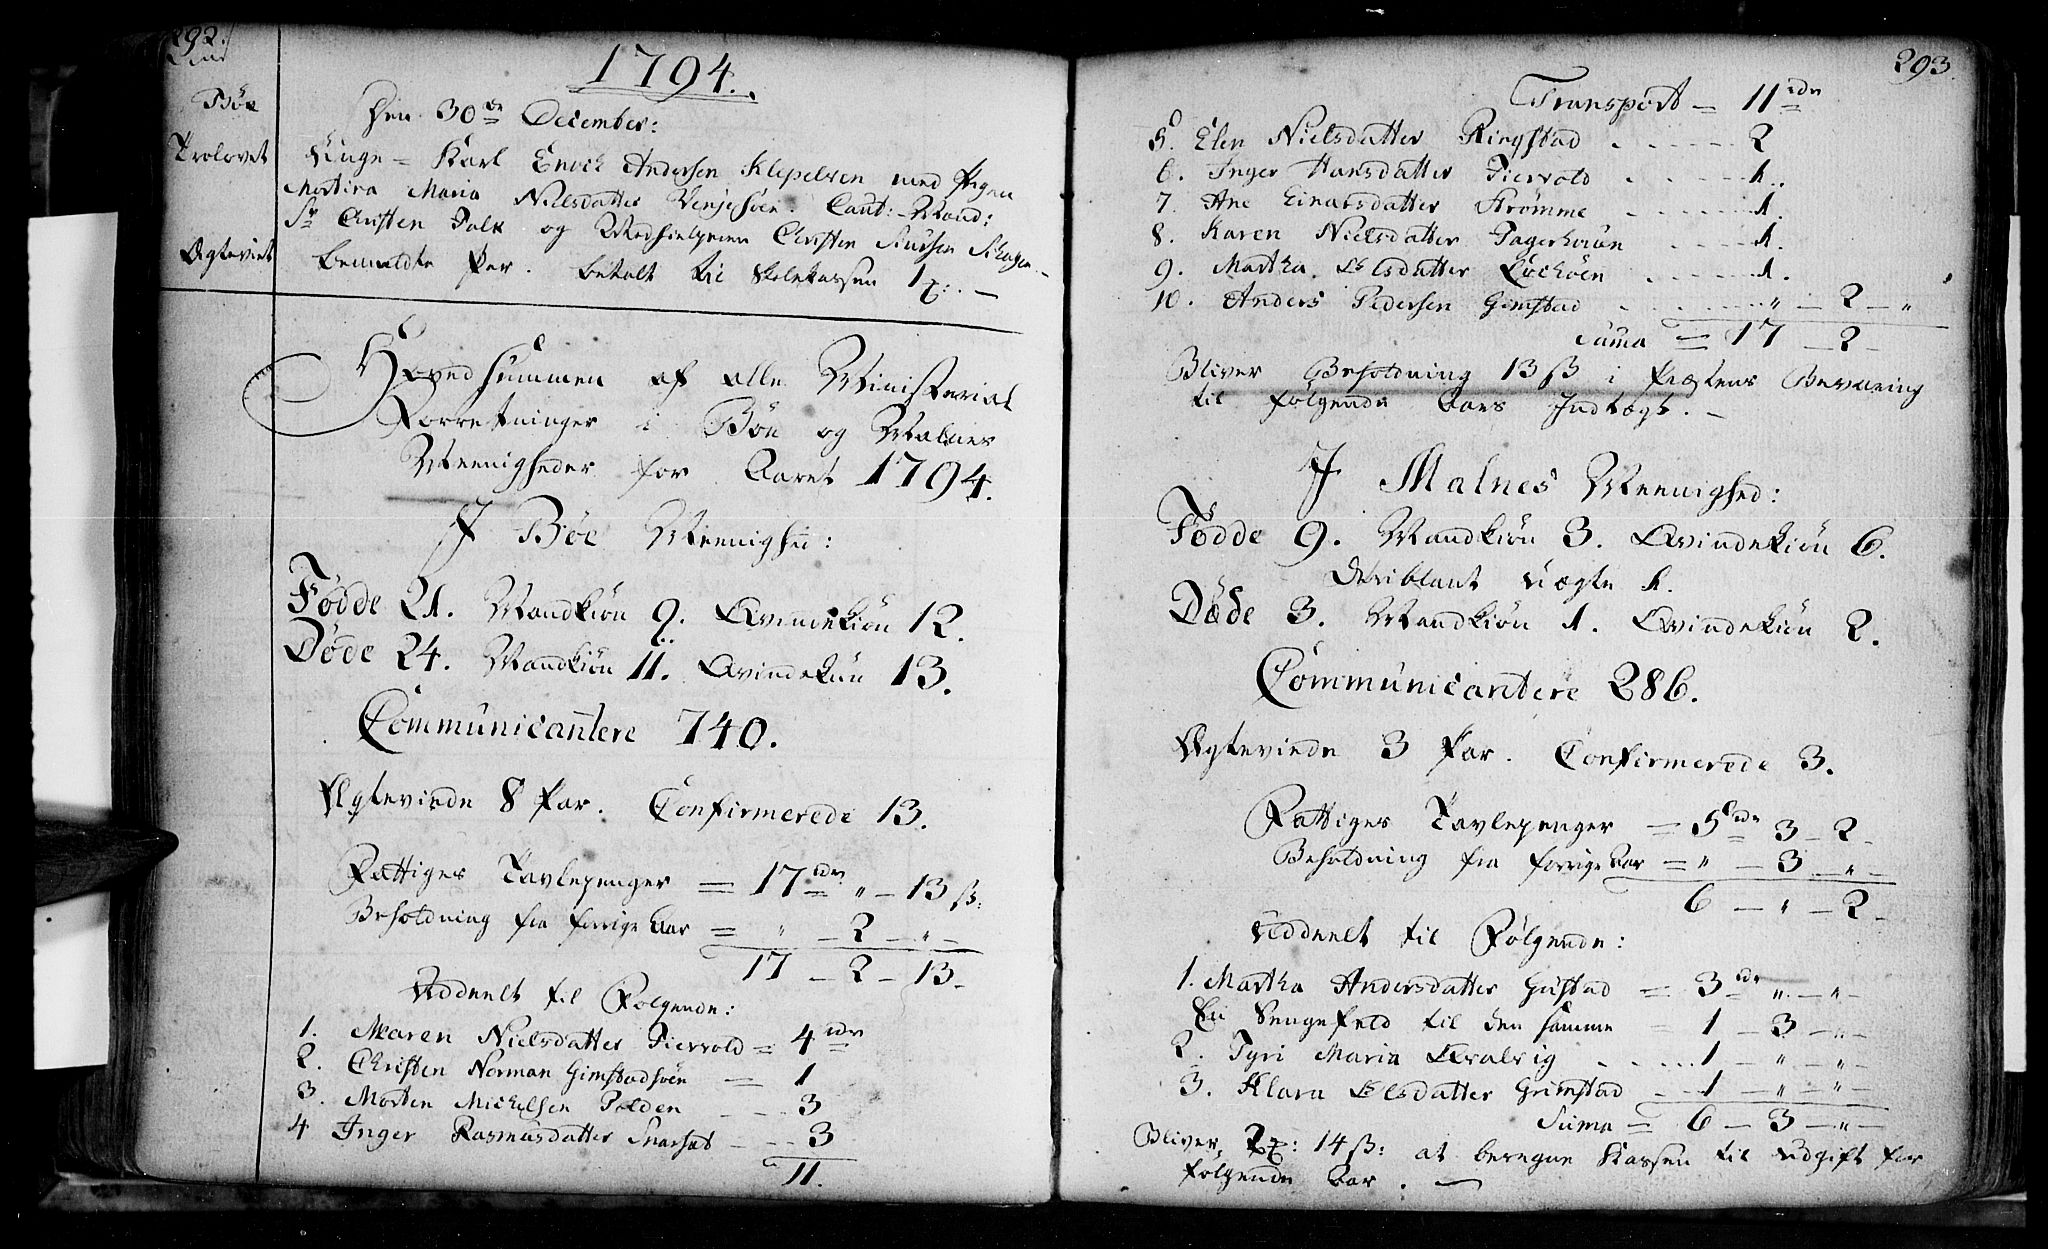 292.
1794.
Bøe
Den 30de December:
Trolovet
Unge Karl Enoch Andersen Klepelsen med Pigen
Martina Maria Nielsdatter Venjesøen. Caut:-Mænd:
Sr Christen Falk og Medhielperen Christen
Ægteviet
bemeldte Par. betalt til Skolekassen 1
Hovedsummen af alle Ministerial
Forretninger i Bøe og Malnes
Meenigheder for Aaret 1794.
I Bøe Meenighed:
Fødde 21. Mandkiøn 9. Qvindekiøn 12.
Døde 24. Mandkiøn 11. Qvindekiøn 13.
Communicantere 740.
Ægteviede 8 Par. Confirmerede 13.
Fattiges Tavlepenger = 17 rdr " - 13 ß:
Beholdning fra forrige Aar = " - 2 - " -
17 - 2 - 13 -
Uddeelt til Følgende:
1. Maren Nielsdatter Fiervold = 4 rdr
2. Christen Norman Gimstadsøen = 1
3. Morten Michelsen Polden - - - 3
4 Inger Rasmusdatter Snarset - - - 3
11.
293.
Transport = 11 rdr
5. Elen Nielsdatter Ringstad . - - - - 2
6. Inger Hansdatter Fiervold . - - - - 1.
7. Ane Einarsdatter Strømme - - - - 1.
8. Karen Nielsdatter Fagerhoun - - - - 1.
9. Martha Elsdatter Lochøen . - - - - 1.
10. Anders Pedersen Gimstad - - - - " - 2 - "
Suma = 17 - 2 -
Bliver Beholdning 13 ß i Præstens Bevaring
til følgende Aars Indtægt. -
I Malnes Meenighed:
Fødde 9. Mandkiøn 3. Qvindekiøn 6.
Deriblant uægte 1.
Døde 3. Mandkiøn 1. Qvindekiøn 2.
Communicantere 286.
Ægteviede 3 Par. Confirmerede 3.
Fattiges Tavlepenger = 5 rdr 3 - 2 -
Beholdning fra forrige Aar = " - 3 - " -
6 - " - 2 -
Uddeelt til Følgende:
1. Martha Andersdatter Gustad = 3 rdr " - " -
En Sengefeld til den samme = 1 - 3 - " -
2. Tyri Maria Qvalvig . - - - - 1 - " - " -
3. Klara Elsdatter Grimstad - - 1 - " - " -
Suma = 6 - 3 - " -
Bliver 2 : 14 ß: at beregne Kassen til Udgift for
følgende Aar. -